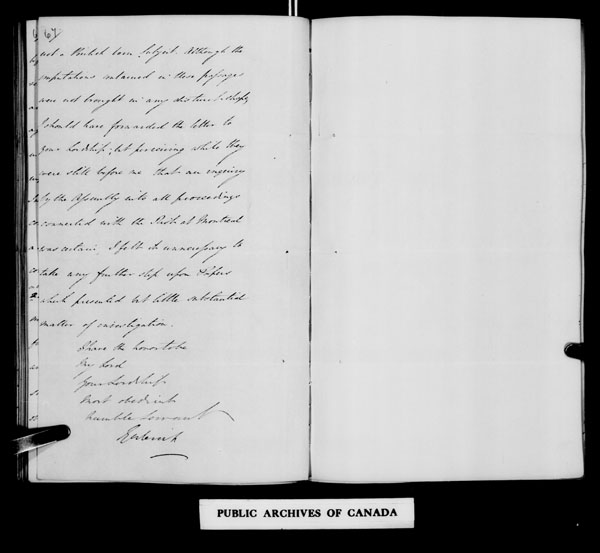 67
not a British born Subject. Although the
imputations contained in those passages
were not brought in any distinct shape,
I should have forwarded the letter to
your Lordship, but perceiving while they
were still before me that an enquiry
by the Assembly into all proceedings
connected with the Riot at Montreal
was certain, I felt it unnecessary to
take any further step upon Papers
which presented but little substantial
matter of investigation.
I have the honor to be
My Lord
Your Lordship's
most obedient
humble Servant
PUBLIC ARCHIVES OF CANADA